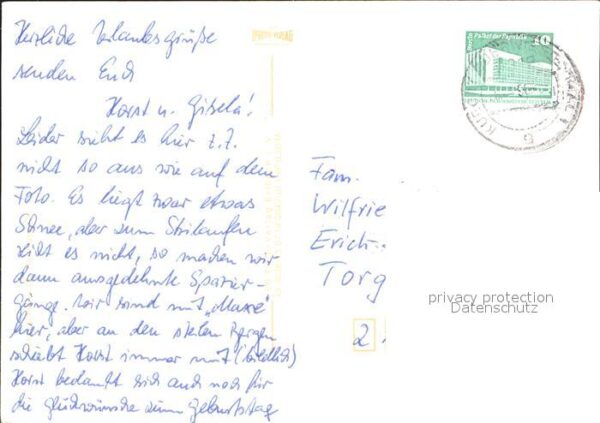 Herzliche Urlaubsgrüße
senden Euch
Horst u. Gisela!
Leider sieht es hier z.Z.
nicht so aus wie auf dem
Foto. Es liegt zwar etwas
Schnee, aber zum Skilaufen
reicht es nicht, so machen wir
dann ausgedehnte Spazier-
gänge. Wir sind mit „Maxe"
hier, aber an den steilen Bergen
schiebt Horst immer mit (bildlich)
Horst bedankt sich auch noch für
die Glückwünsche zum Geburtstag
Berlin, Palast der Republik
10
Fam.
Wilfrie
Erich-
Torg
2
privacy protection
Datenschutz